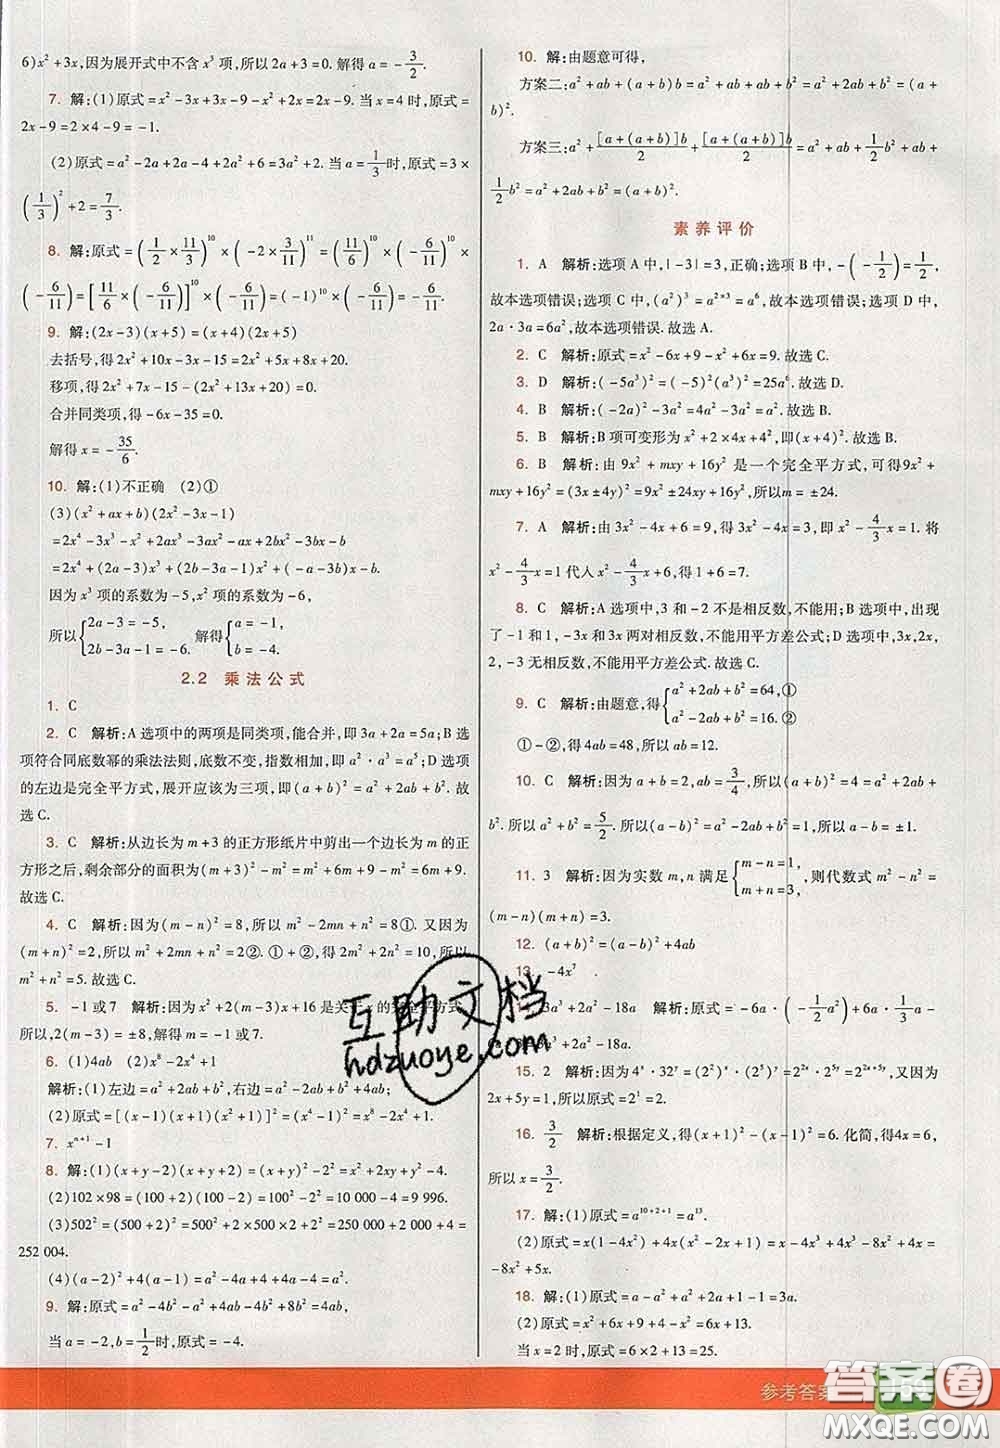 6)x²+3x,因为展开式中不含x³项,所以2a+3=0.解得a=-3/2.
7. 解:(1)原式=x²-3x+3x-9-x²+2x=2x-9.当x=4时,原式=
2x-9=2×4-9=-1.
(2)原式=a²-2a+2a-4+2a²+6=3a²+2.当a=1/3时,原式=3×
(1/3)²+2=7/3.
8. 解:原式=(1/2×11/3)¹⁰×(-2×3/11)¹¹=(11/6)¹⁰×(-6/11)¹⁰×
(-6/11)=[11/6×(-6/11)]¹⁰×(-6/11)=(-1)¹⁰×(-6/11)=-6/11.
9. 解:(2x-3)(x+5)=(x+4)(2x+5)
去括号,得2x²+10x-3x-15=2x²+5x+8x+20.
移项,得2x²+7x-15-(2x²+13x+20)=0.
合并同类项,得-6x-35=0.
解得x=-35/6.
10. 解:(1)不正确 (2)①
(3)(x²+ax+b)(2x²-3x-1)
=2x⁴-3x³-x²+2ax³-3ax²-ax+2bx²-3bx-b
=2x⁴+(2a-3)x³+(2b-3a-1)x²+(-a-3b)x-b.
因为x³项的系数为-5,x²项的系数为-6,
所以{2a-3=-5, 2b-3a-1=-6. 解得{a=-1, b=-4.
2.2 乘法公式
1. C
2. C 解析:A选项中的两项是同类项,能合并,即3a+2a=5a;B选
项符合同底数幂的乘法法则,底数不变,指数相加,即a²·a³=a⁵;D选项
的左边是完全平方式,展开应该为三项,即(a+b)²=a²+2ab+b².故
选C.
3. C 解析:从边长为m+3的正方形纸片中剪出一个边长为m的正
方形之后,剩余部分的面积为(m+3)²-m²=m²+6m+9-m²=6m+9.
故选C.
4. C 解析:因为(m-n)²=8,所以m²-2mn+n²=8①.又因为
(m+n)²=2,所以m²+2mn+n²=2②.①+②,得2m²+2n²=10,所以
m²+n²=5.故选C.
5. -1或7 解析:因为x²+2(m-3)x+16是关于x的完全平方式,
所以,2(m-3)=±8,解得m=-1或7.
6. (1)4ab (2)x⁸-2x⁴+1
解析:(1)左边=a²+2ab+b²,右边=a²-2ab+b²+4ab;
(2)原式=[(x-1)(x+1)(x²+1)]²=(x⁴-1)²=x⁸-2x⁴+1.
7. xⁿ⁺¹-1
8. 解:(1)(x+y-2)(x+y+2)=(x+y)²-2²=x²+2xy+y²-4.
(2)102×98=(100+2)(100-2)=100²-2²=10 000-4=9 996.
(3)502²=(500+2)²=500²+2×500×2+2²=250 000+2 000+4=
252 004.
(4)(a-2)²+4(a-1)=a²-4a+4+4a-4=a².
9. 解:原式=a²-4b²-a²+4ab-4b²+8b²=4ab,
当a=-2,b=1/2时,原式=-4.
10. 解:由题意可得,
方案二:a²+ab+(a+b)b=a²+ab+ab+b²=a²+2ab+b²=(a+
b)².
方案三:a²+[a+(a+b)]b/2+[a+(a+b)]b/2=a²+ab+1/2b²+ab+
1/2b²=a²+2ab+b²=(a+b)².
素养评价
1. A 解析:选项A中,|-3|=3,正确;选项B中,-(-1/2)=1/2,
故本选项错误;选项C中,(a²)³=a²ˣ³=a⁶,故本选项错误;选项D中,
2a·3a=6a²,故本选项错误.故选A.
2. C 解析:原式=x²-6x+9-x²+6x=9.故选C.
3. D 解析:(-5a³)²=(-5)²(a³)²=25a⁶.故选D.
4. B 解析:(-2a)²-3a²=4a²-3a²=a².故选B.
5. B 解析:B项可变形为x²+2×4x+4²,即(x+4)².故选B.
6. B 解析:由9x²+mxy+16y²是一个完全平方式,可得9x²+
mxy+16y²=(3x±4y)²=9x²±24xy+16y²,所以m=±24.
7. A 解析:由3x²-4x+6=9,得3x²-4x=3,即x²-4/3x=1.将
x²-4/3x=1代入x²-4/3x+6,得1+6=7.
8. C 解析:A选项中,3和-2不是相反数,不能用;B选项中,出现
了-1和1,-3x和3x两对相反数,不能用平方差公式;D选项中,3x,2x,
2,-3无相反数,不能用平方差公式.故选C.
9. C 解析:由题意,得{a²+2ab+b²=64,① a²-2ab+b²=16.②
①-②,得4ab=48,所以ab=12.故选C.
10. C 解析:因为a+b=2,ab=3/4,所以(a+b)²=4=a²+2ab+
b².所以a²+b²=5/2.所以(a-b)²=a²-2ab+b²=1.所以a-b=±1.
11. 3 解析:因为实数m,n满足{m-n=1, m+n=3, 则代数式m²-n²=
(m-n)(m+n)=3.
12. (a+b)²=(a-b)²+4ab
13. -4x⁷
3a³+2a²-18a 解析:原式=-6a·(-1/2a²)-6a·
3a³+2a²-18a.
15. 2 解析:因为4ˣ·32ʸ=(2²)ˣ·(2⁵)ʸ=2²ˣ·2⁵ʸ=2²ˣ⁺⁵ʸ,又因为
2x+5y=1,所以原式=2¹=2.
16. 3/2 解析:根据定义,得(x+1)²-(x-1)²=6.化简,得4x=6,
所以x=3/2.
17. 解:(1)原式=a¹⁰⁺²⁺¹=a¹³.
(2)原式=x(1-4x²)+4x(1-x²)=x-4x³+4x-4x³=
-8x³+5x.
18. 解:(1)原式=a-a²+a²+2a=3a.
(2)原式=x²+6x+9+x²-4-2x²=6x+5.
互助文档
hdzuoye.com
参考答案
答案圈
MXQE.COM